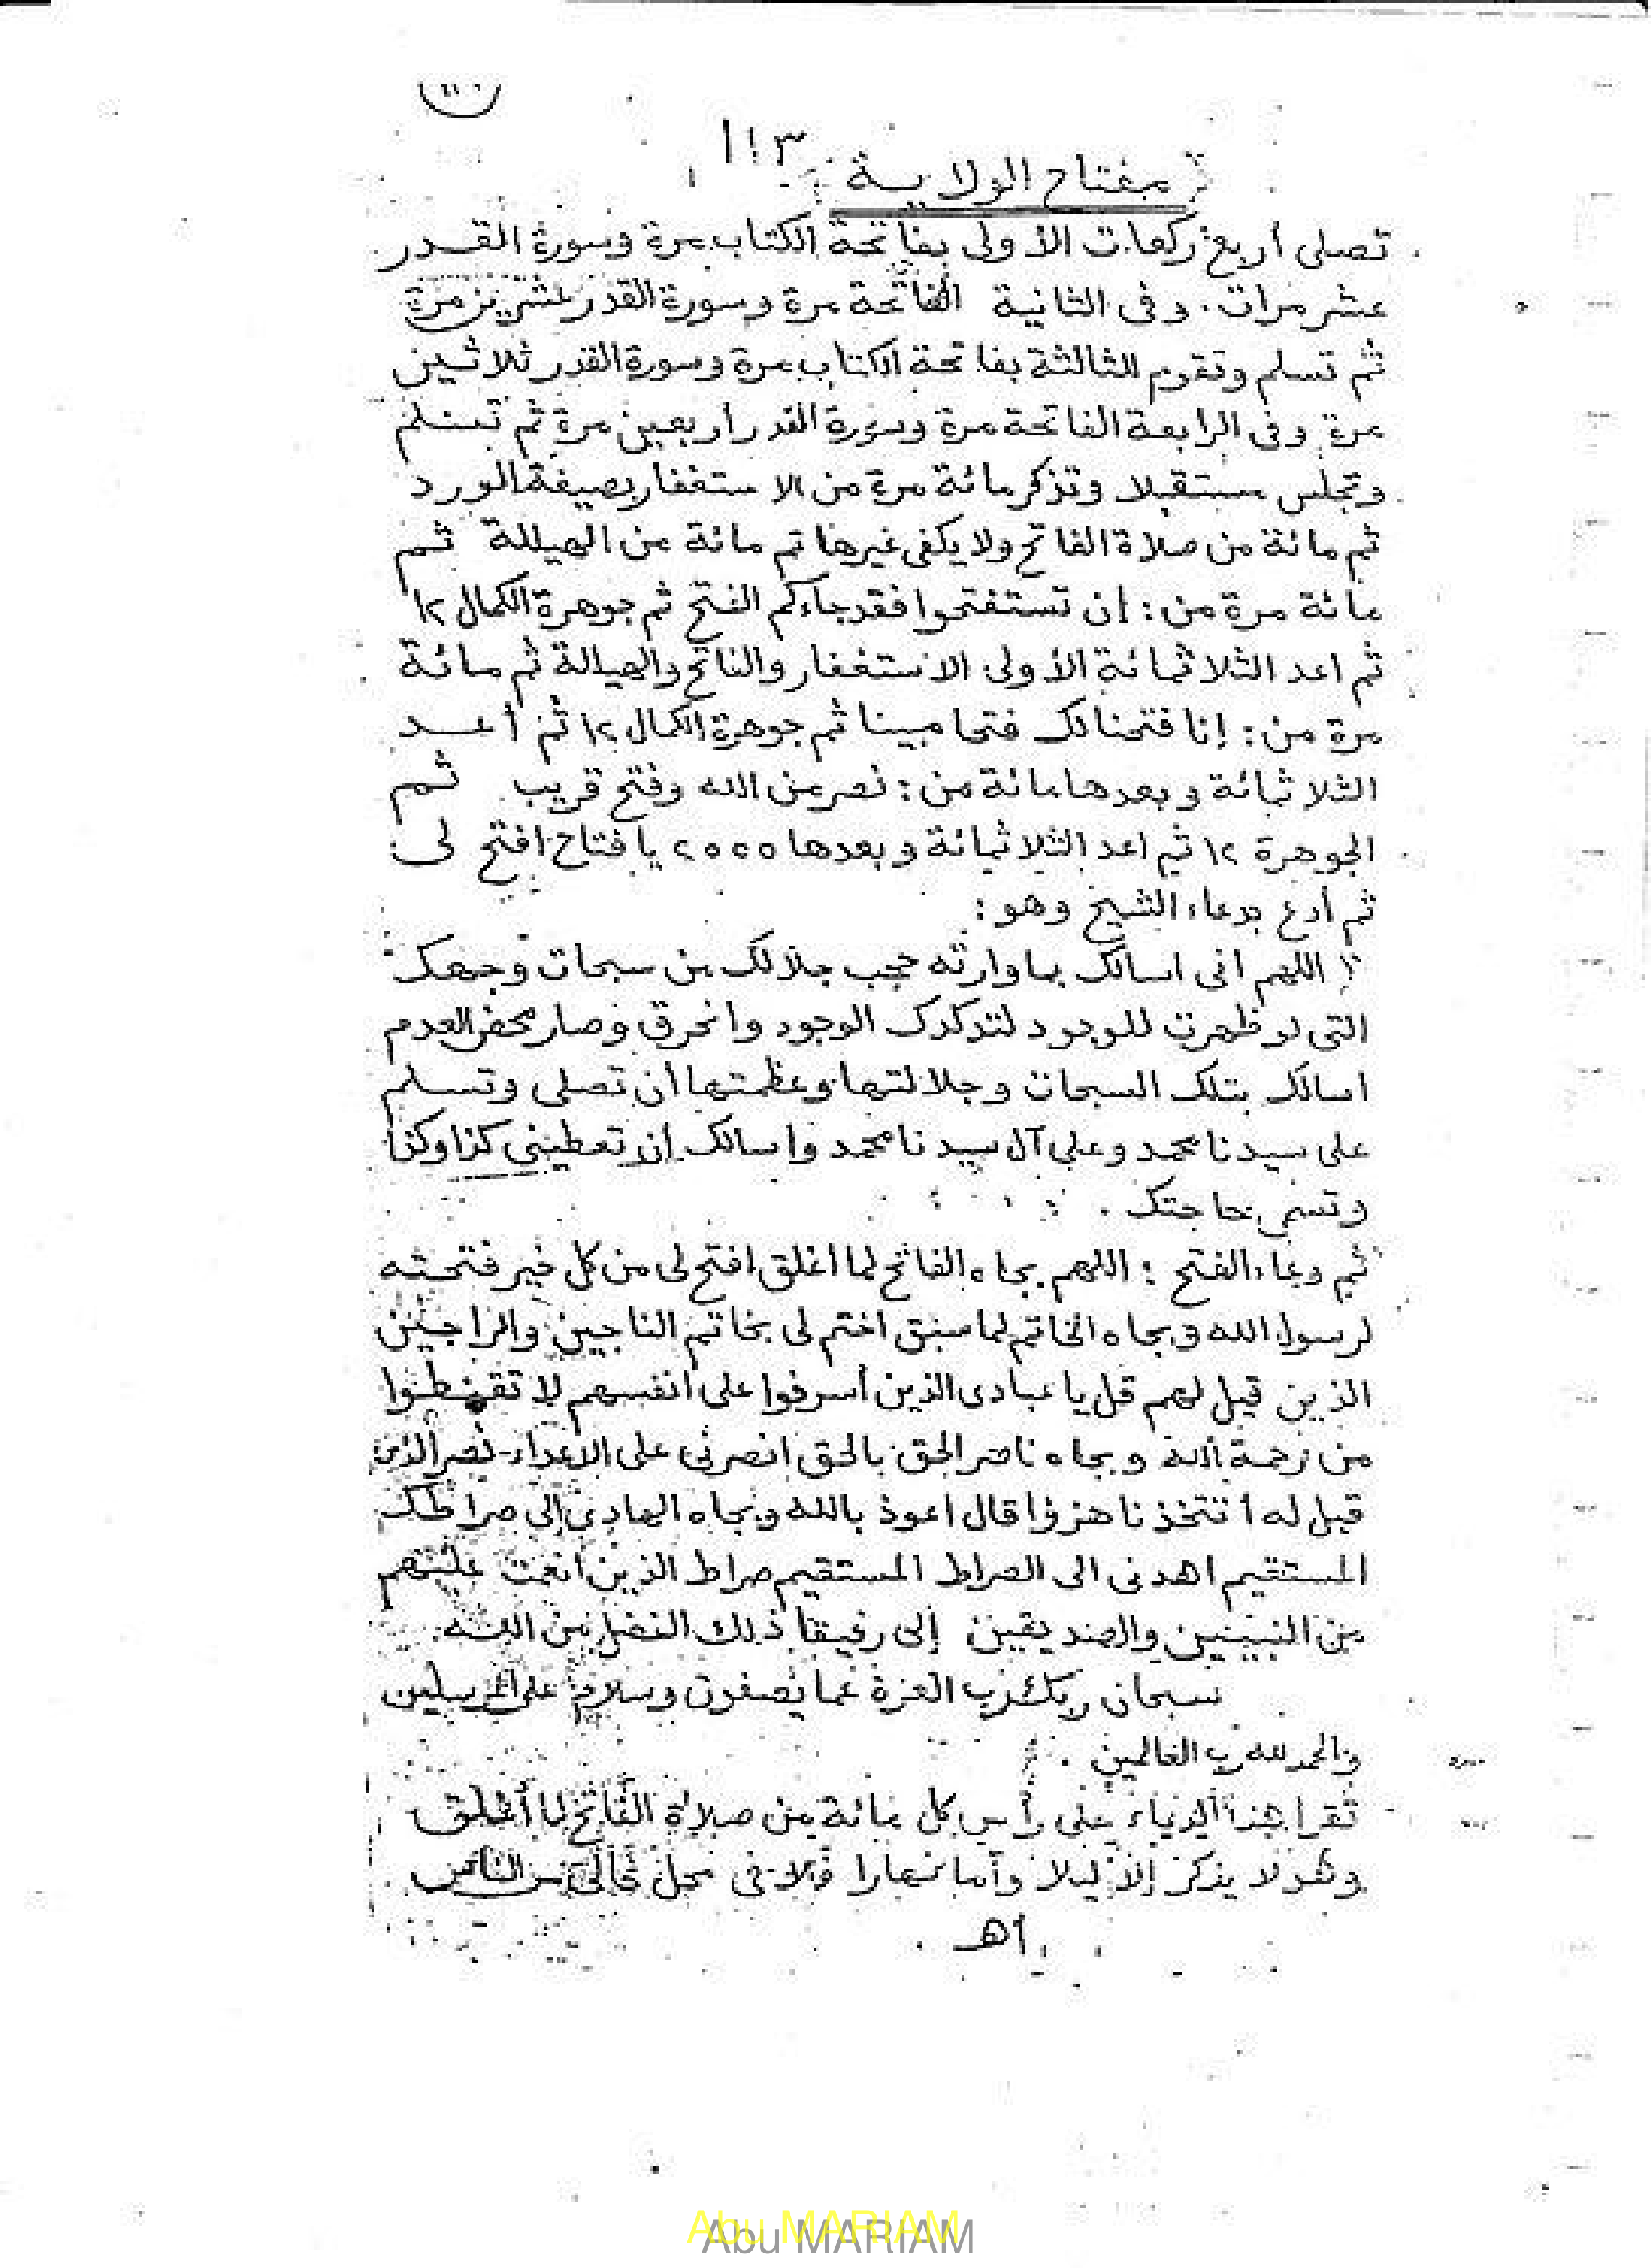 ١١٣
مفتاح الولاية
تصلى أربع ركعات الأولى بفاتحة الكتاب مرة وسورة القدر
عشر مرات . وفى الثانية الفاتحة مرة وسورة القدر عشرين مرة
ثم تسلم وتقوم للثالثة بفاتحة الكتاب مرة وسورة القدر ثلاثين
مرة وفى الرابعة الفاتحة مرة وسورة القدر أربعين مرة ثم تسلم
وتجلس مستقبلا وتذكر مائة مرة من الاستغفار بصيغة الورد
ثم مائة من صلاة الفاتح ولا يكفى غيرها ثم مائة من الهيللة ثم
مائة مرة من : إن تستفتحوا فقد جاءكم الفتح ثم جوهرة الكمال ١٢
ثم اعد الثلاثمائة الأولى الاستغفار والفاتح والهيللة ثم مائة
مرة من : إنا فتحنا لك فتحا مبينا ثم جوهرة الكمال ١٢ ثم أعد
الثلاثمائة وبعدها مائة من : نصر من الله وفتح قريب ثم
الجوهرة ١٢ ثم اعد الثلاثمائة وبعدها يا فتاح افتح لى
ثم أدع بدعاء الشيخ وهو :
اللهم انى اسالك بما وارته حجب جلالك من سبحات وجهك
التى لو ظهرت للوجود لتدكدك الوجود وانحرق وصار محض العدم
اسالك بتلك السبحات وجلالتها وعظمتها أن تصلى وتسلم
على سيدنا محمد وعلى آل سيدنا محمد واسالك أن تعطينى كذا وكذا
وتسمى حاجتك .
ثم دعاء الفتح : اللهم بجاه الفاتح لما اغلق افتح لى من كل خير فتحته
لرسول الله وبجاه الخاتم لما سبق اختم لى بخاتم الناجين والراجين
الذين قيل لهم قل يا عبادى الذين أسرفوا على انفسهم لا تقنطوا
من رحمة الله وبجاه ناصر الحق بالحق انصرنى على الاعداء نصر الذى
قيل له أتتخذنا هزؤا قال اعوذ بالله وبجاه الهادى إلى صراطك
المستقيم اهدنى الى الصراط المستقيم صراط الذين أنعمت عليهم
من النبيين والصديقين إلى رفيقا ذلك الفضل من الله .
سبحان ربك رب العزة عما يصفون وسلام على المرسلين
والحمد لله رب العالمين .
تقرا هذا الدعاء على رأس كل مائة من صلاة الفاتح لما أغلق
وهو لا يذكر إلا ليلا وأما نهارا فلا فى محل خالى من الناس
أهـ .
Abu MARIAM
Abu MARIAM